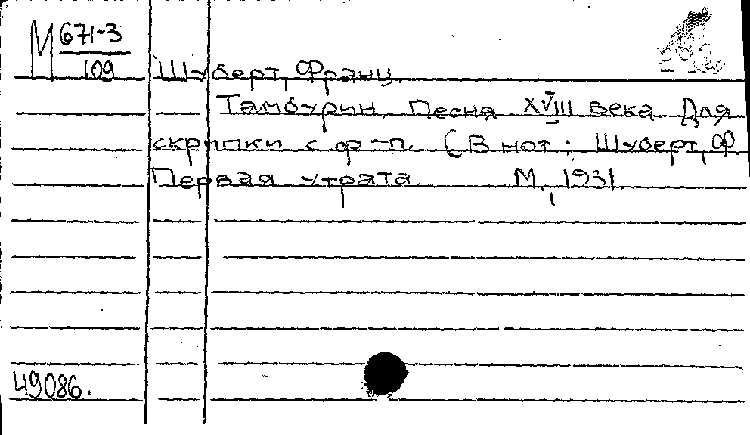 М 671-3
109
Шуберт, Франц.
Тамбурин. Песня XVIII века. Для
скрипки с ф-п. (В нот: Шуберт, Ф.
Первая утрата М., 1931.
49086.